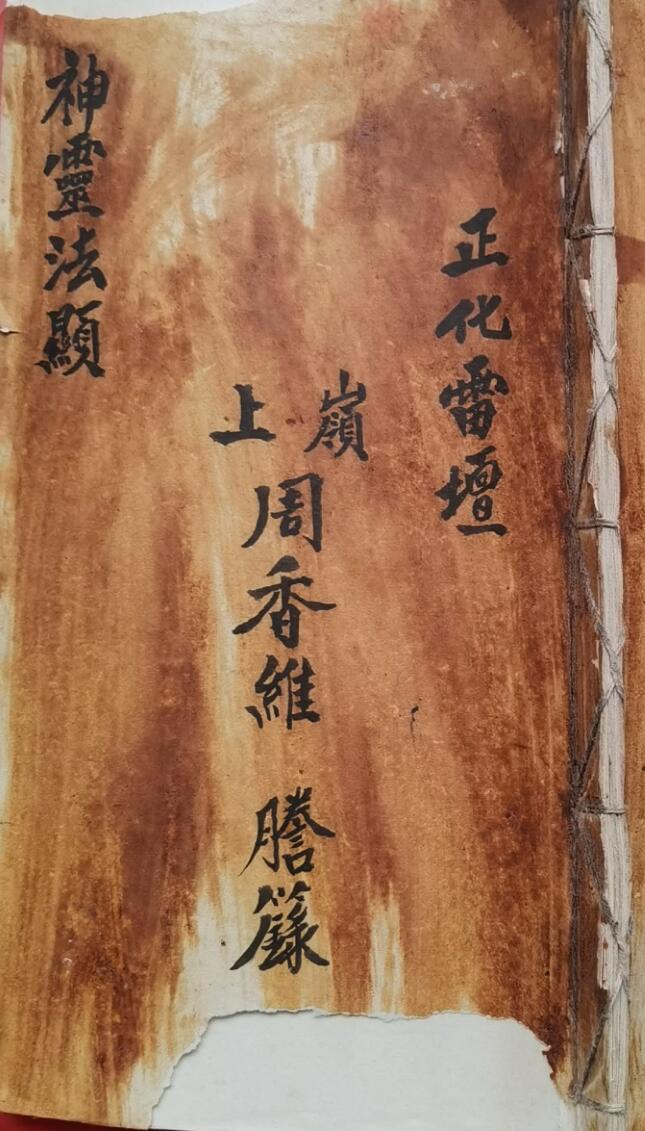 正化雷壇
嶺上
周香維 謄籙
神靈法顯